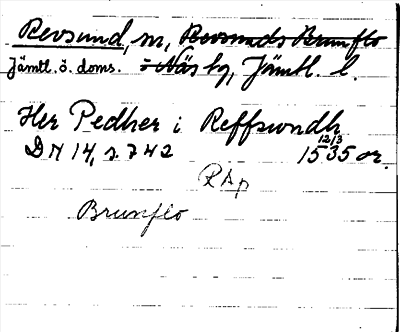 Revsund, sn, Revsunds Brunflo
Jämtl. ö. doms. i Näs tg, Jämtl. l.
Her Pedher i Reffswndh
12/3
DN 14, s. 742 1535 or.
RAp
Brunflo